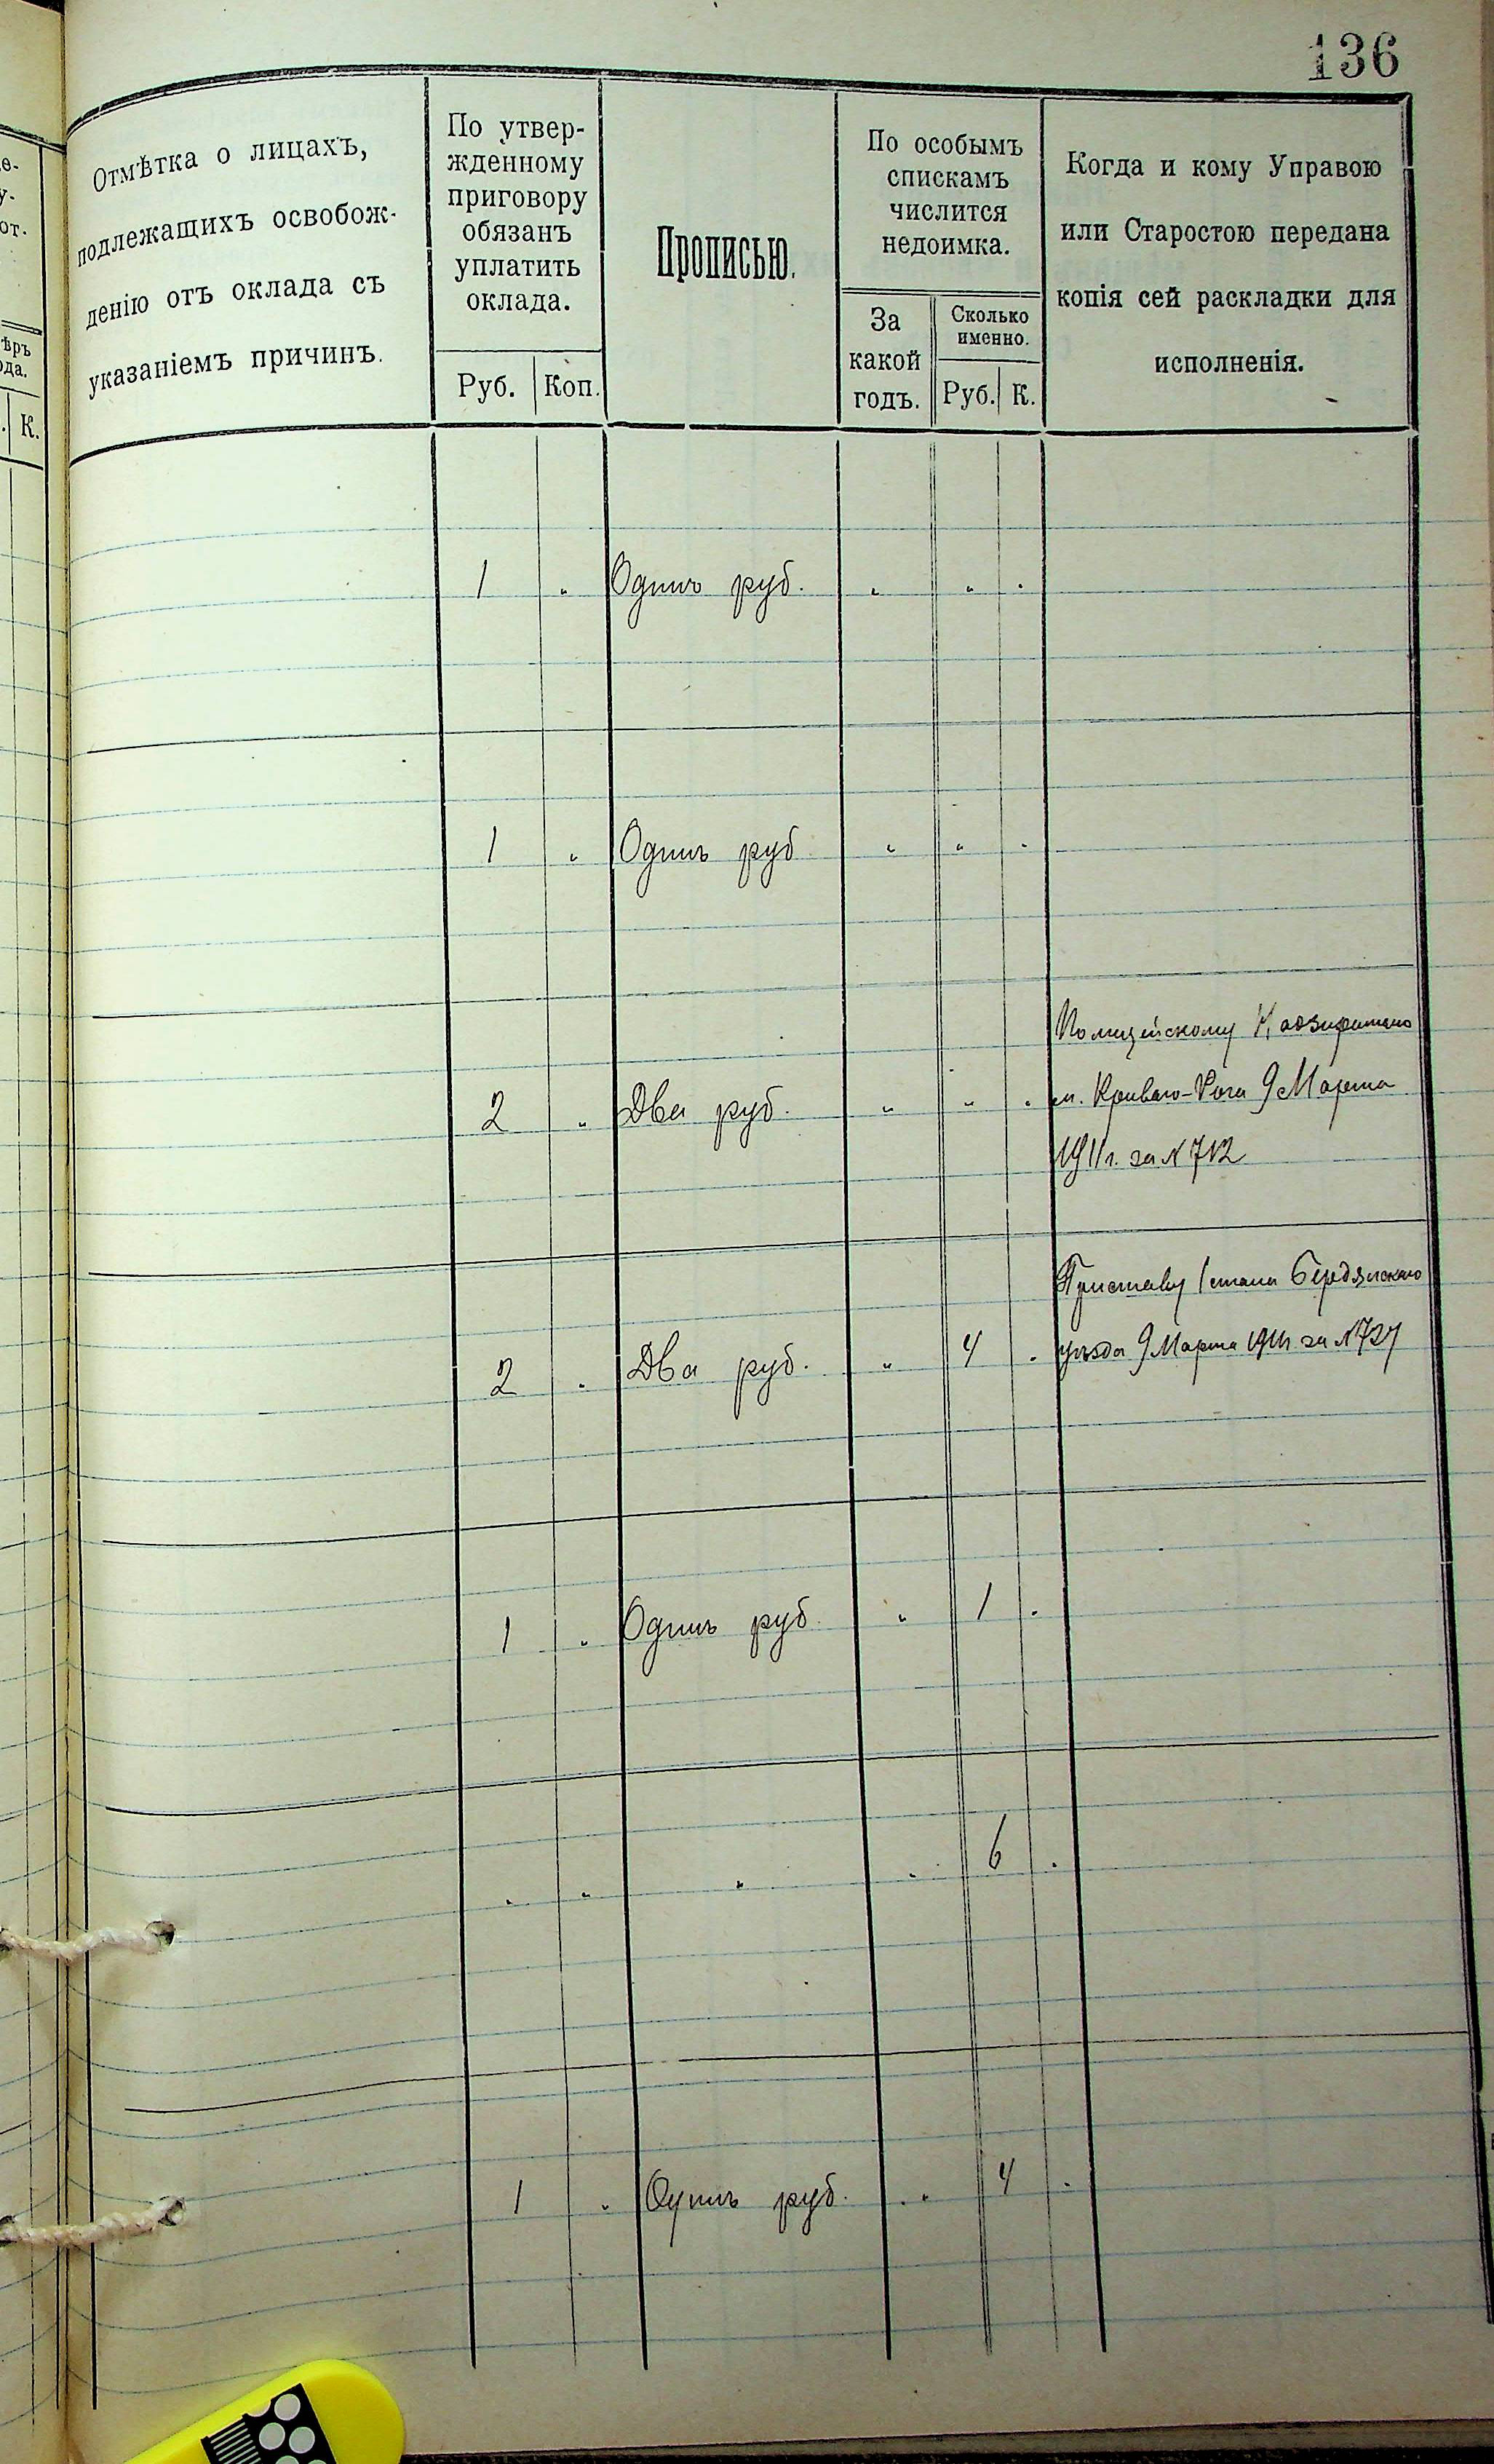 136
Отмѣтка о лицахъ,
подлежащихъ освобож-
денію отъ оклада съ
указаніемъ причинъ.
По утвер-
жденному
приговору
обязанъ
уплатить
оклада.
Руб. Коп.
Прописью.
По особымъ
спискамъ
числится
недоимка.
За
какой
годъ.
Сколько
именно.
Руб. К.
Когда и кому Управою
или Старостою передана
копія сей раскладки для
исполненія.
ѣръ
ода.
К.
1 " Одинъ руб. " " "
1 " Одинъ руб " " "
Полицейскому Надзирателю
2 " Два руб. " " " м. Кривого-Рога 9 Марта
1911 г. за № 712
Приставу 1 стана Бердянскаго
2 " Два руб. " 4 " уѣзда 9 Марта 1911 г. за № 727
1 " Одинъ руб " 1 "
" " " " 6 "
1 " Одинъ руб. " 4 "